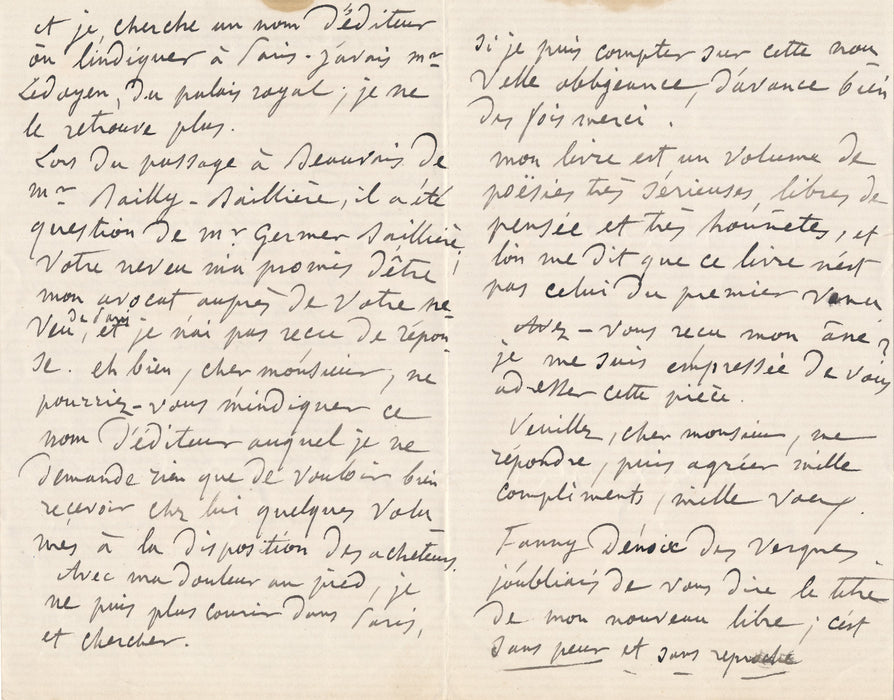 et je, cherche un nom d'éditeur
ou l'indiquer à Paris - j'avais mr
Ledoyen, du palais royal ; je ne
le retrouve plus.
Lors du passage à Beauvais de
mr Bailly-Baillière, il a été
question de mr Germer Baillière ;
votre neveu m'a promis d'être
mon avocat auprès de votre ne-
veu de Paris, et je n'ai pas reçu de répon
se. eh bien, cher monsieur, ne
pourriez-vous m'indiquer ce
nom d'éditeur auquel je ne
demande rien que de vouloir bien
recevoir chez lui quelques volu
mes à la disposition des acheteurs.
Avec ma douleur au pied, je
ne puis plus courir dans Paris,
et chercher.
si je puis compter sur cette nou
velle obligeance, d'avance bien
des fois merci.
mon livre est un volume de
poësies très sérieuses, libres de
pensée et très honnêtes, et
l'on me dit que ce livre n'est
pas celui du premier venu
Avez-vous reçu mon âne ?
je me suis empressée de vous
adresser cette pièce.
Veuillez, cher monsieur, me
répondre, puis agréer mille
compliments, mille vœux.
Fanny Dénoix des Vergnes
j'oubliais de vous dire le titre
de mon nouveau libre ; c'est
sans peur et sans reproche